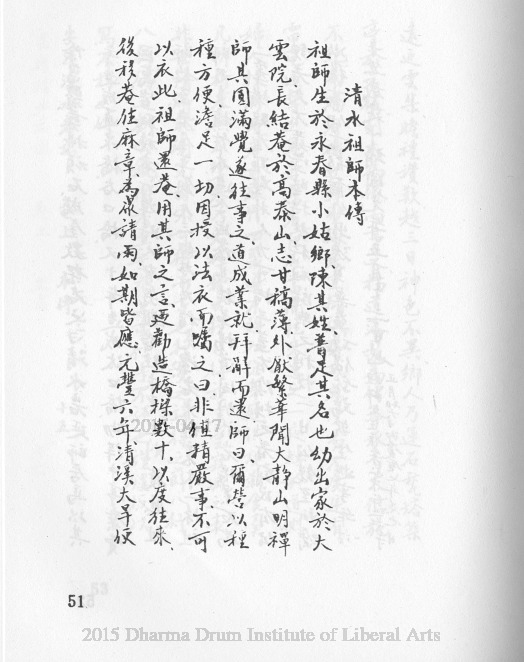 清水祖師本傳
祖師生於永春縣小姑鄉、陳其姓、普足其名也幼出家於大
雲院、長結菴於高泰山、志甘槁薄外厭繁華聞大靜山明禪
師其圓滿覺遂往事之、道成業就、拜辭而還師曰、爾營以種
種方便、澹足一切、因授以法衣而囑之曰、非值精嚴事、不可
以衣此祖師還菴、用其師之言、廼勸造橋樑數十、以度往來、
後移菴住麻章、為眾請雨、如期皆應、元豐六年、清溪大旱便
2015-04-17
51
2015 Dharma Drum Institute of Liberal Arts